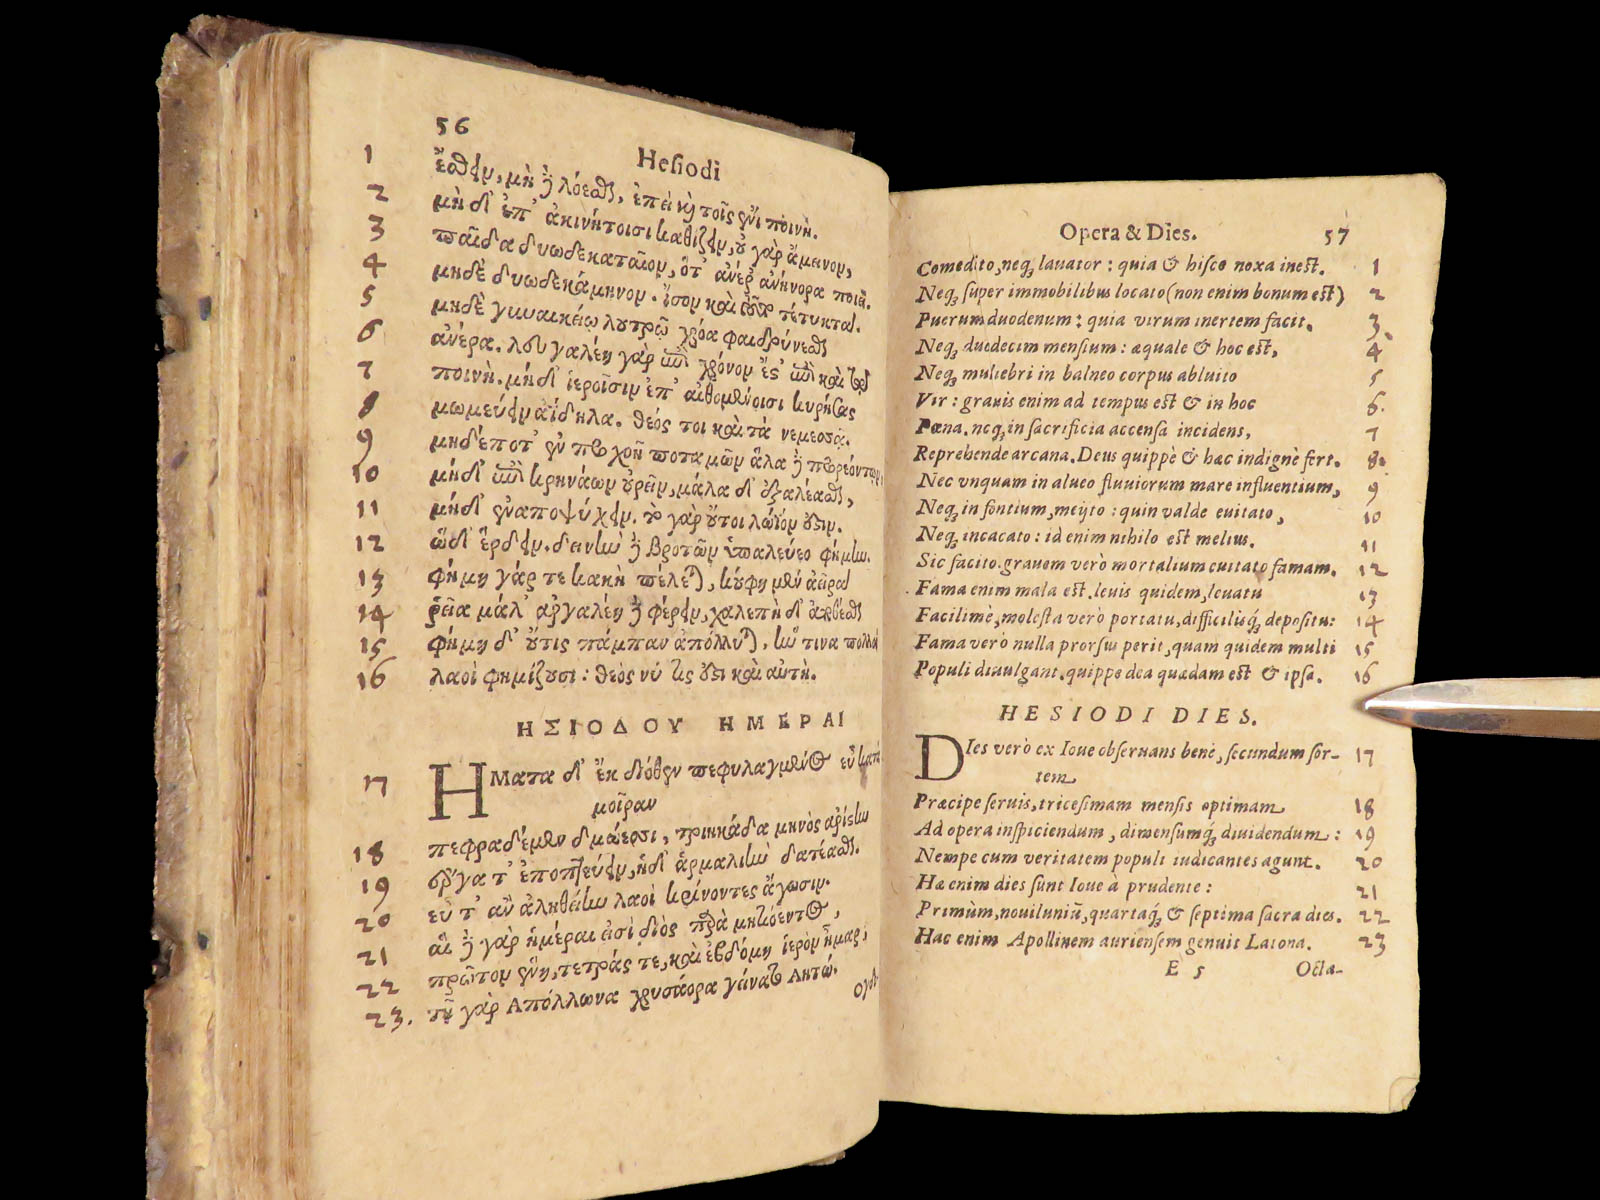 56
Hesiodi
1 ἔσθειν, μὴ δὲ λόεσθαι, ἐπεὶ καὶ τοῖς ἔνι ποινή.
2 μὴ δ' ἐπ' ἀκινήτοισι καθίζειν, οὐ γὰρ ἄμεινον,
3 παῖδα δυωδεκαταῖον, ὅτ' ἀνέρ' ἀνήνορα ποιεῖ.
4 μηδὲ δυωδεκάμηνον. ἶσον καὶ τοῦτο τέτυκται.
5 μηδὲ γυναικείῳ λουτρῷ χρόα φαιδρύνεσθαι
6 ἀνέρα. λευγαλέη γὰρ ἐπὶ χρόνον ἔστ' ἐπὶ καὶ τῷ
7 ποινή. μήδ' ἱεροῖσιν ἐπ' αἰθομένοισι κυρήσας
8 μωμεύειν ἀΐδηλα. θεός τοι καὶ τὰ νεμεσσᾷ.
9 μηδέποτ' ἐν προχοῇ ποταμῶν ἅλα δὲ προρεόντων
10 μήδ' ἐπὶ κρηνάων οὐρεῖν, μάλα δ' ἐξαλέασθαι,
11 μήδ' ἐναποψύχειν. τὸ γὰρ οὔτοι λώϊόν ἐστιν.
12 ὧδ' ἔρδειν. δεινὴν δὲ βροτῶν ὑπαλεύεο φήμην.
13 φήμη γάρ τε κακὴ πέλεται, κούφη μὲν ἀεῖραι
14 ῥεῖα μάλ' ἀργαλέη δὲ φέρειν, χαλεπὴ δ' ἀποθέσθαι
15 φήμη δ' οὔτις πάμπαν ἀπόλλυται, ἥν τινα πολλοὶ
16 λαοὶ φημίζουσι: θεὸς νύ τίς ἐστι καὶ αὐτή.
ΗΣΙΟΔΟΥ ΗΜΕΡΑΙ
17 ΗΜατα δ' ἐκ διόθεν πεφυλαγμένος εὖ κατὰ
μοῖραν
18 πεφραδέμεν δμώεσσι, τριηκάδα μηνὸς ἀρίστην
19 ἔργα τ' ἐποπτεύειν, ἠδ' ἁρμαλιὴν δατέασθαι.
20 εὖ τ' ἂν ἀληθείην λαοὶ κρίνοντες ἄγωσιν.
21 αἵ δὲ γὰρ ἡμέραι εἰσὶ διὸς παρὰ μητιόεντος,
22 πρῶτον ἔνη, τετράς τε, καὶ ἑβδόμη ἱερὸν ἦμαρ,
23. τῇ γὰρ Ἀπόλλωνα χρυσάορα γείνατο Λητώ.
ογδ
Opera & Dies. 57
Comedito, neq; lauator : quia & hisce noxa inest. 1
Neq; super immobilibus locato (non enim bonum est) 2
Puerum duodenum : quia virum inertem facit. 3
Neq; duodecim mensium : æquale & hoc est, 4
Neq; muliebri in balneo corpus abluito 5
Vir : grauis enim ad tempus est & in hoc 6.
Pœna. neq; in sacrificia accensa incidens, 7
Reprehende arcana. Deus quippè & hæc indignè fert. 8
Nec vnquam in alueo fluuiorum mare influentium, 9
Neq; in fontium, meijto : quin valde euitato, 10
Neq; incacato : id enim nihilo est melius. 11
Sic facito. grauem verò mortalium euitato famam. 12
Fama enim mala est. leuis quidem, leuatu 13
Facilimè, molesta verò portatu, difficilisq́; depositu: 14
Fama verò nulla prorsus perit, quam quidem multi 15
Populi diuulgant. quippe dea quædam est & ipsa. 16
HESIODI DIES.
DIes verò ex Ioue obseruans benè, secundum sor- 17
tem
Præcipe seruis, tricesimam mensis optimam 18
Ad opera inspiciendum, dimensumq́; diuidendum : 19
Nempe cum veritatem populi iudicantes agunt. 20
Hæ enim dies sunt Ioue à prudente : 21
Primùm, nouiluniū, quartaq́; & septima sacra dies. 22
Hac enim Apollinem auriensem genuit Latona. 23
E 5 Octa-